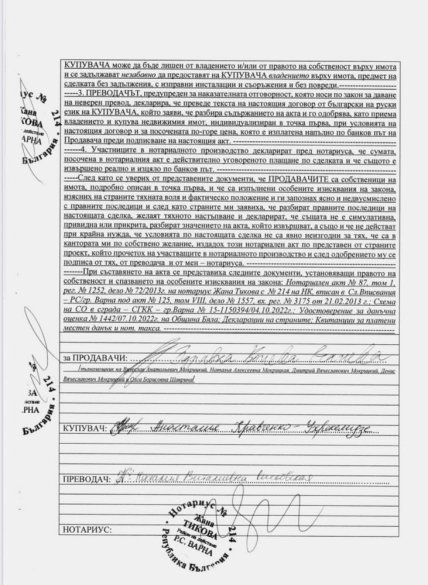 КУПУВАЧА може да бъде лишен от владението и/или от правото на собственост върху имота
и се задължават незабавно да предоставят на КУПУВАЧА владението върху имота, предмет на
сделката без задължения, с изправни инсталации и съоръжения и без повреди.
-----3. ПРЕВОДАЧЪТ, предупреден за наказателната отговорност, която носи по закон за даване
на неверен превод, декларира, че преведе текста на настоящия договор от български на руски
език на КУПУВАЧА, който заяви, че разбира съдържанието на акта и го одобрява, като приема
владението и купува недвижимия имот, индивидуализиран в точка първа, при условията на
настоящия договор и за посочената по-горе цена, която е изплатена напълно по банков път на
Продавача преди подписване на настоящия акт.
-----4. Участниците в нотариалното производство декларират пред нотариуса, че сумата,
посочена в нотариалния акт е действително уговореното плащане по сделката и че същото е
извършено реално и изцяло по банков път.
-----След като се уверих от представените документи, че ПРОДАВАЧИТЕ са собственици на
имота, подробно описан в точка първа, и че са изпълнени особените изисквания на закона,
изясних на страните тяхната воля и фактическо положение и ги запознах ясно и недвусмислено
с правните последици и след като страните ми заявиха, че разбират правните последици на
настоящата сделка, желаят тяхното настъпване и декларират, че същата не е симулативна,
привидна или прикрита, разбират значението на акта, който извършват, а също и че не действат
при крайна нужда, че условията по настоящата сделка не са явно неизгодни за тях, че са в
кантората ми по собствено желание, издадох този нотариален акт по представен от страните
проект, който прочетох на участващите в нотариалното производство и след одобрението му се
подписа от тях, от преводача и от мен – нотариуса.
-----При съставянето на акта се представиха следните документи, установяващи правото на
собственост и спазването на особените изисквания на закона: Нотариален акт № 87, том 1,
рег. № 1252, дело №72/2013г. на нотариус Жана Тикова с № 214 на НК, вписан в Сл.Вписвания
– РС/гр. Варна под акт № 125, том VIII, дело № 1557, вх. рег. № 3175 от 21.02.2013 г.; Схема
на СО в сграда – СГКК – гр.Варна № 15-1150394/04.10.2022г.; Удостоверение за данъчна
оценка № 1442/07.10.2022г. на Община Бяла; Декларации на страните; Квитанции за платени
местен данък и нот. такса.
за ПРОДАВАЧИ:
КУПУВАЧ: Анастасия
ПРЕВОДАЧ: Наталия Виталиевна
НОТАРИУС:
Нотариус №
214
Жана
ТИКОВА
Район на действие
Р.С. ВАРНА
Република България